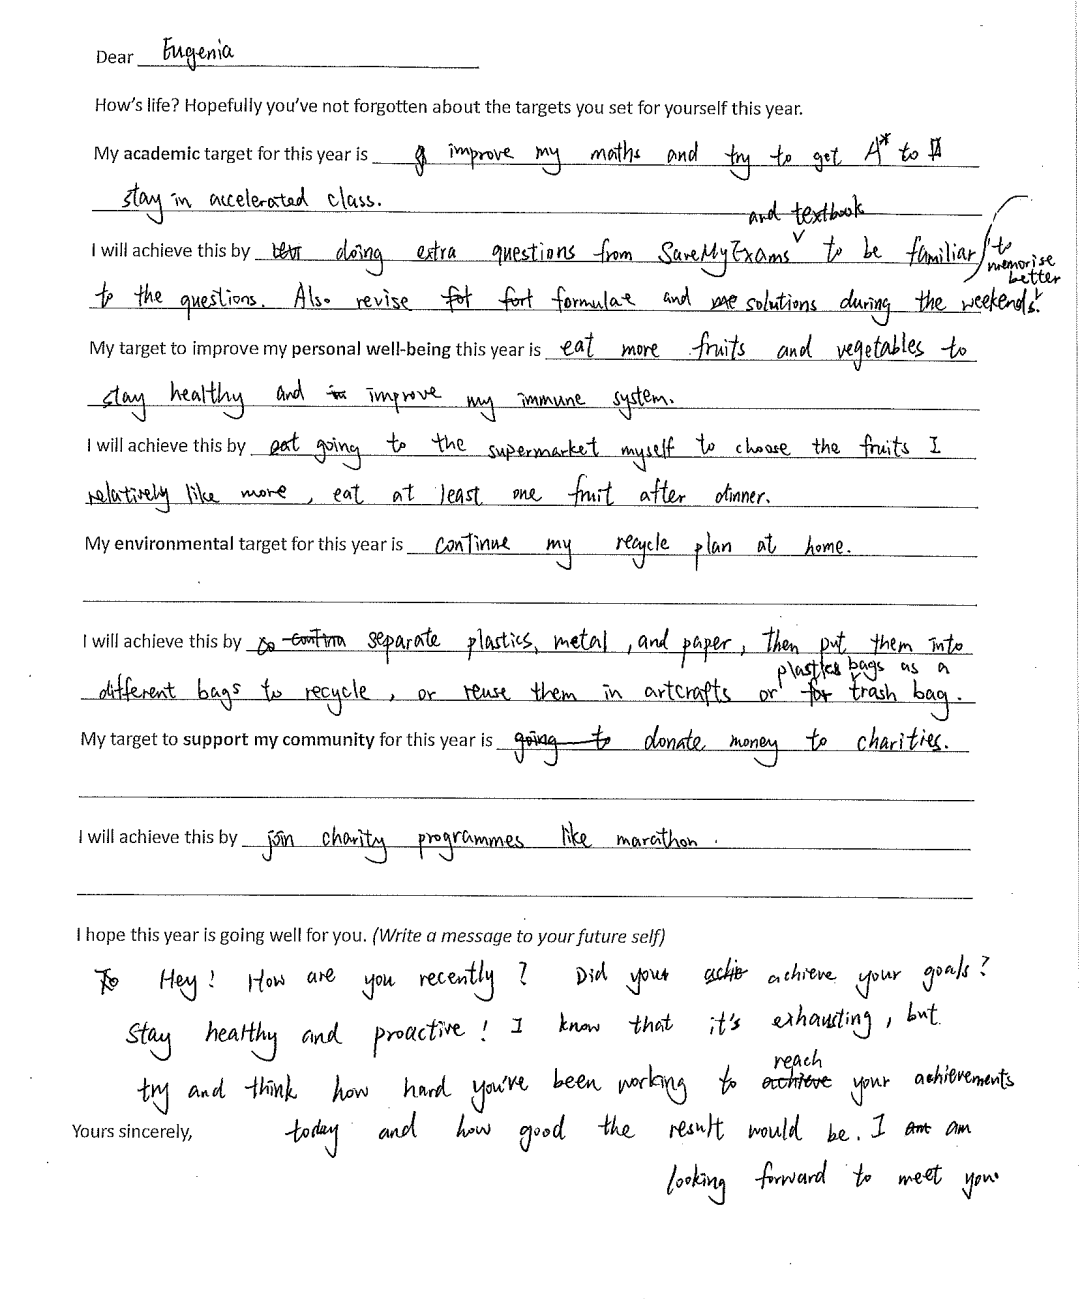 Dear Eugenia
How's life? Hopefully you've not forgotten about the targets you set for yourself this year.
My academic target for this year is improve my maths and try to get A* to
stay in accelerated class.
and textbook
I will achieve this by doing extra questions from SaveMyExams to be familiar
to the questions. Also revise formulae and solutions during the weekends
to memorise better.
My target to improve my personal well-being this year is eat more fruits and vegetables to
stay healthy and improve my immune system.
I will achieve this by going to the supermarket myself to choose the fruits I
relatively like more, eat at least one fruit after dinner.
My environmental target for this year is continue my recycle plan at home.
I will achieve this by separate plastics, metal, and paper, then put them into
plastics bags as a
different bags to recycle, or reuse them in artcrafts or trash bag.
My target to support my community for this year is going to donate money to charities.
I will achieve this by join charity programmes like marathon.
I hope this year is going well for you. (Write a message to your future self)
Hey! How are you recently? Did your achieve your goals?
Stay healthy and proactive! I know that it's exhausting, but
reach
try and think how hard you've been working to achieve your achievements
Yours sincerely, today and how good the result would be. I am
looking forward to meet you.